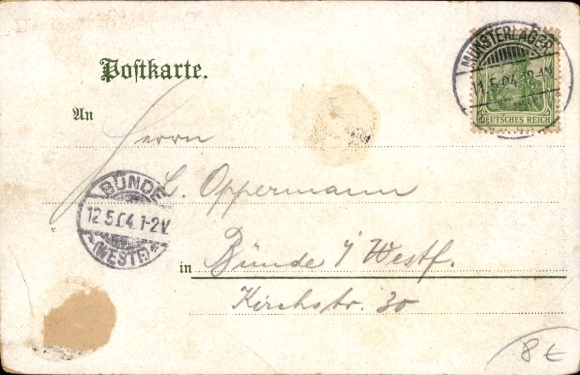 MUNSTERLAGER
11.5.04.
DEUTSCHES REICH
Postkarte.
An
Herrn
L. Oppermann
BÜNDE
12.5.04. 1-2N.
(WESTF.)
in Bünde i/Westf.
Kirchstr. 30
8 €